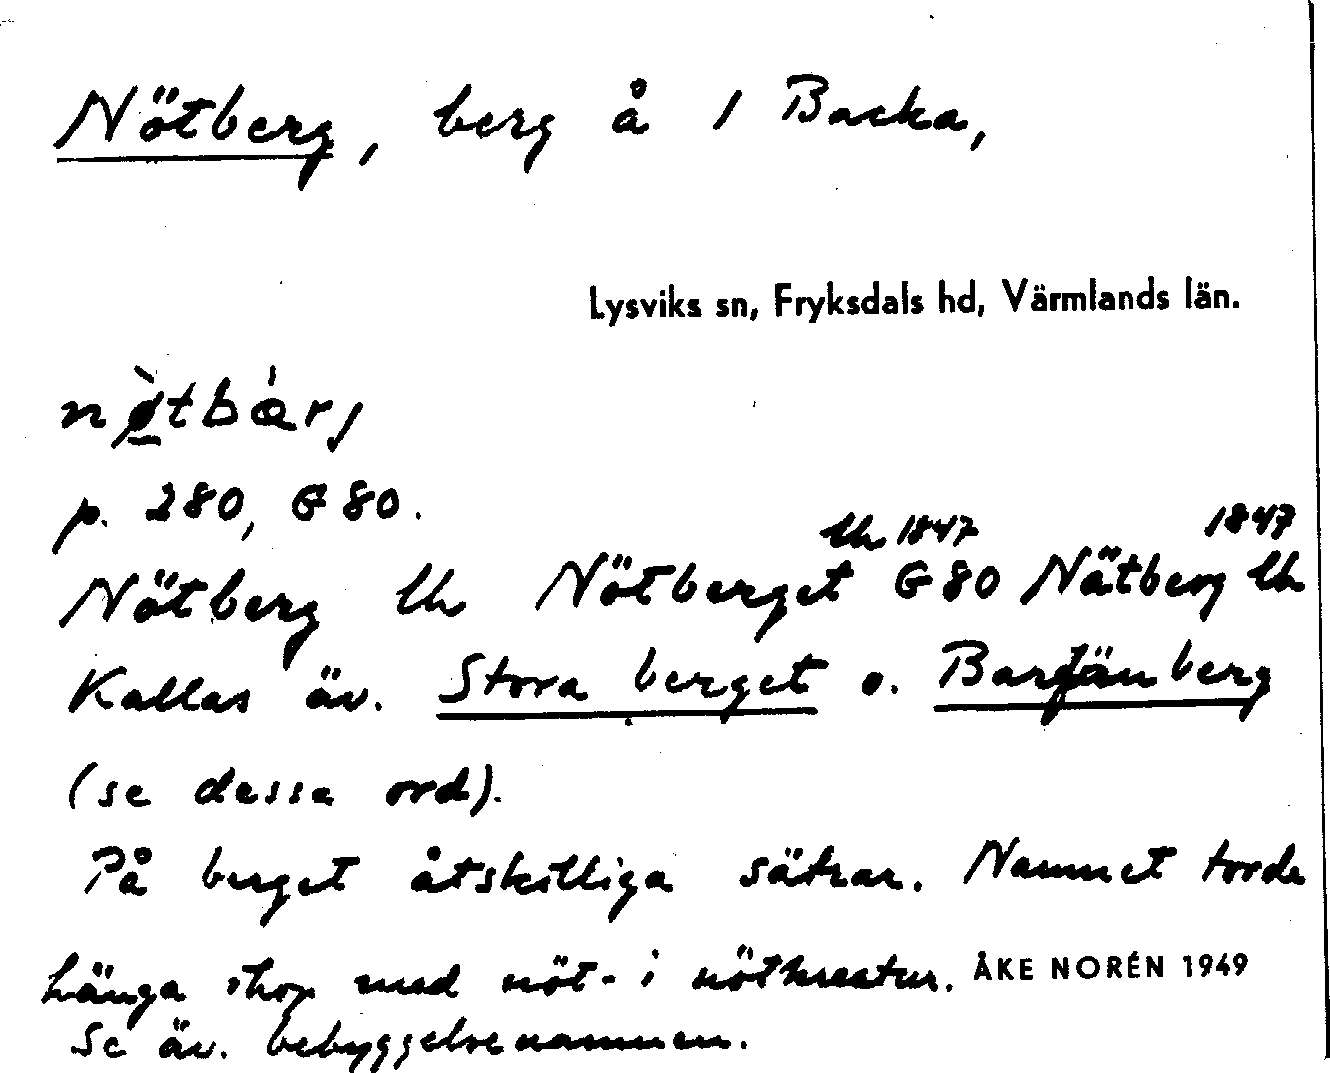 Nötberg, berg å 1 Backa,
Lysviks sn, Fryksdals hd, Värmlands län.
nø̀tbæ̀rj
p. 280, G 80.
lh 1847 1847
Nötberg lh Nötberget G 80 Nätberg lh
Kallas äv. Stora berget o. Barfänberg
(se dessa ord).
På berget åtskilliga sätrar. Namnet torde
hänga ihop med nöt- i nötkreatur. ÅKE NORÉN 1949
Se äv. bebyggelsenamnen.